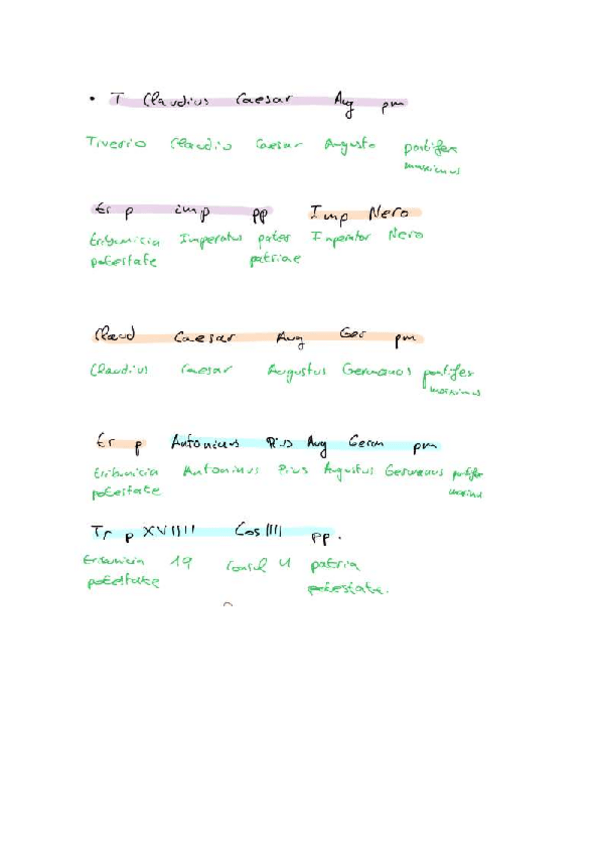 • T Claudius Caesar Aug pm
Tiverio Claudio Caesar Augusto pontifex maximus
tr p imp pp Imp Nero
tribunicia Imperatus pater Imperator Nero
potestate patriae
Claud Caesar Aug Ger pm
Claudius Caesar Augustus Germanos pontifex maximus
tr p Antoninus Pius Aug Germ pm
tribunicia Antoninus Pius Augustus Germanus pontifex
potestate
Tr p XVIIII Cos IIII pp.
tribunicia 19 Consul 4 patria
potestate potestate.